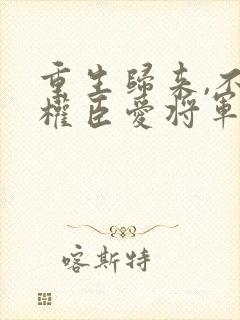 重生歸來,不
權臣愛將軍
喀斯特